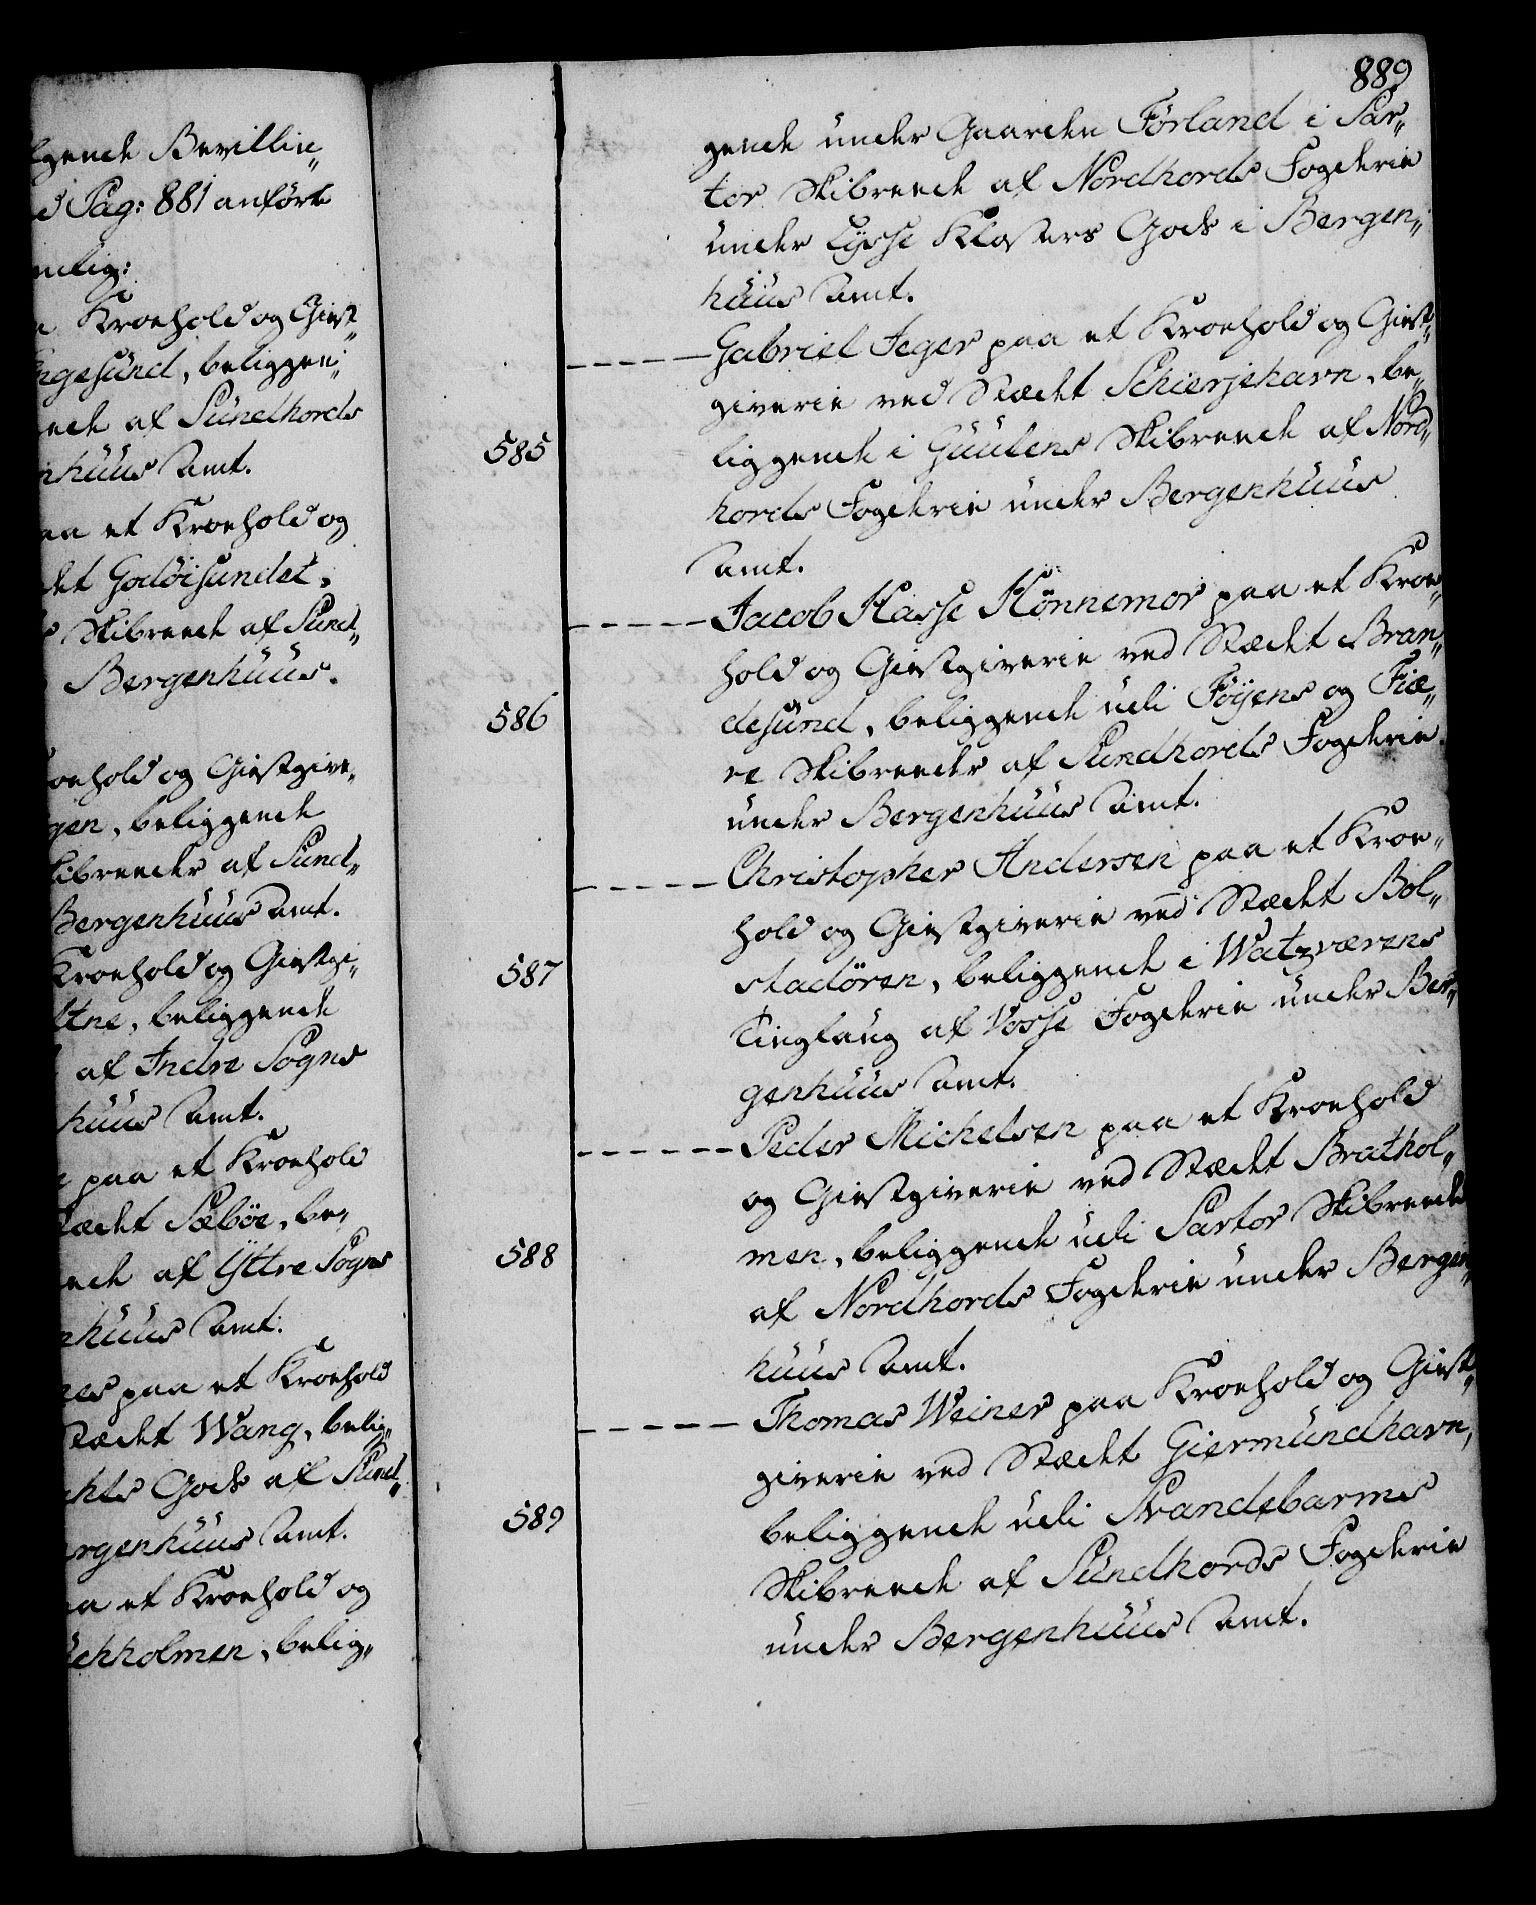 lgende Bevillin„
d Pag: 881 anførte
mlig:
Kroehold og Giest„
ngesund, beliggen„
ende af Sundhords
nhuus Amt.
aa et Kroehold og
det Godöisundet,
Skibreede af Sund„
Bergenhuus.
oehold og Giestgive„
gen, beliggende
kibreeder af Sund„
Bergenhuus Amt.
Kroehold og Giestgi„
ltne, beliggende
af Indre Sogns
huus Amt.
paa et Kroehold
tædet Sæböe, be„
ede af Yttre Sogns
nhuus Amt:
nes paa et Kroehold
tædet Wang, belig„
chts Gods af Sund„
ergenhuus Amt.
aa et Kroehold og
ekholmen, belig„
889
gende under Gaarden Førland i Sar„
tor Skibreede af Nordhords Fogderie
under Lysse Klosters Gods i Bergen„
huus Amt.
Gabriel Jeger paa et Kroehold og Giest„
giverie ved Stædet Schierjehavn, be„
585 liggende i Guulens Skibreede af Nord„
hords Fogderie under Bergenhuus
Amt.
Jacob Hasse Hönnemor paa et Kroe„
hold og Giestgiverie ved Stædet Bran„
586 desund, beliggende udi Föyens og Fiæ„
re Skibreeder af Sundhords Fogderie
under Bergenhuus Amt.
Christopher Andersen paa et Kroe„
hold og Giestgiverie ved Stædet Bol„
587 stadören, beliggende i Watzværens
Tinglaug af Vosse Fogderie under Ber„
genhuus Amt.
Peder Michelsen paa et Kroehold
og Giestgiverie ved Stædet Brathol„
588 men, beliggende udi Sartor Skibreede
af Nordhords Fogderie under Bergen„
huus Amt.
Thomas Weiner paa Kroehold og Giest„
giverie ved Stædet Giermundhavn,
589 beliggende udi Strandebarms
Skibreede af Sundhords Fogderie
under Bergenhuus Amt.